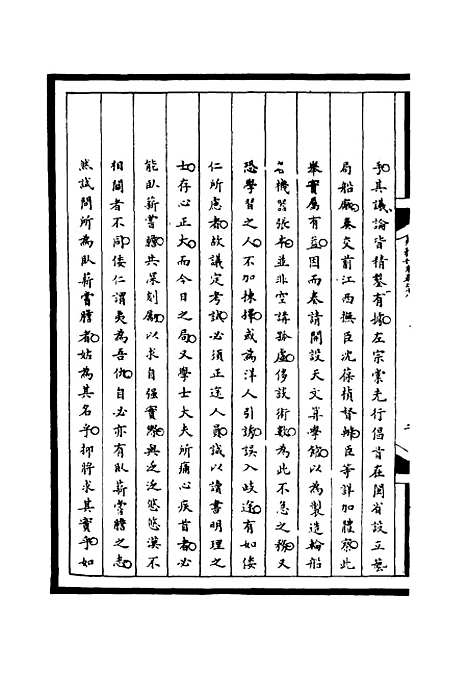 乎其議論皆精鑿有據左宗棠先行倡首在閩省設立藝
局船廠奏交前江西撫臣沈葆楨督辦臣等詳加體察此
舉實屬有益因而奏請開設天文算學館以為製造輪船
各機器張本並非空講孤虛侈談術數為此不急之務又
恐學習之人不加揀擇或為洋人引誘誤入歧途有如倭
仁所慮者故議定考試必須正途人員誠以讀書明理之
士存心正大而今日之局又學士大夫所痛心疾首者必
能臥薪嘗膽共深刻勵以求自強實際與泛泛悠悠漠不
相關者不同倭仁謂夷為吾仇自必亦有臥薪嘗膽之志
然試問所為臥薪嘗膽者姑為其名乎抑將求其實乎如